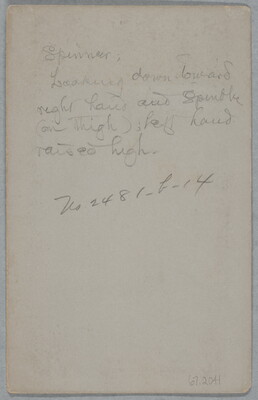 Spinner.
Looking down toward
right hand and spindle
(on thigh); left hand
raised high.
No. 2481-b-14
61.2041